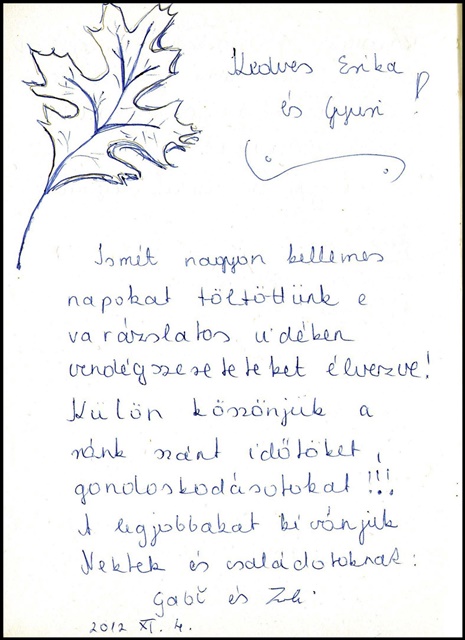 Kedves Erika
és Gyuri!
Ismét nagyon kellemes
napokat töltöttünk e
varázslatos vidéken
vendégszereteteket élvezve!
Külön köszönjük a
ránk szánt időtöket,
gondoskodásotokat!!!
A legjobbakat kívánjuk
Nektek és családotoknak:
Gabi és Zoli
2012 XI. 4.